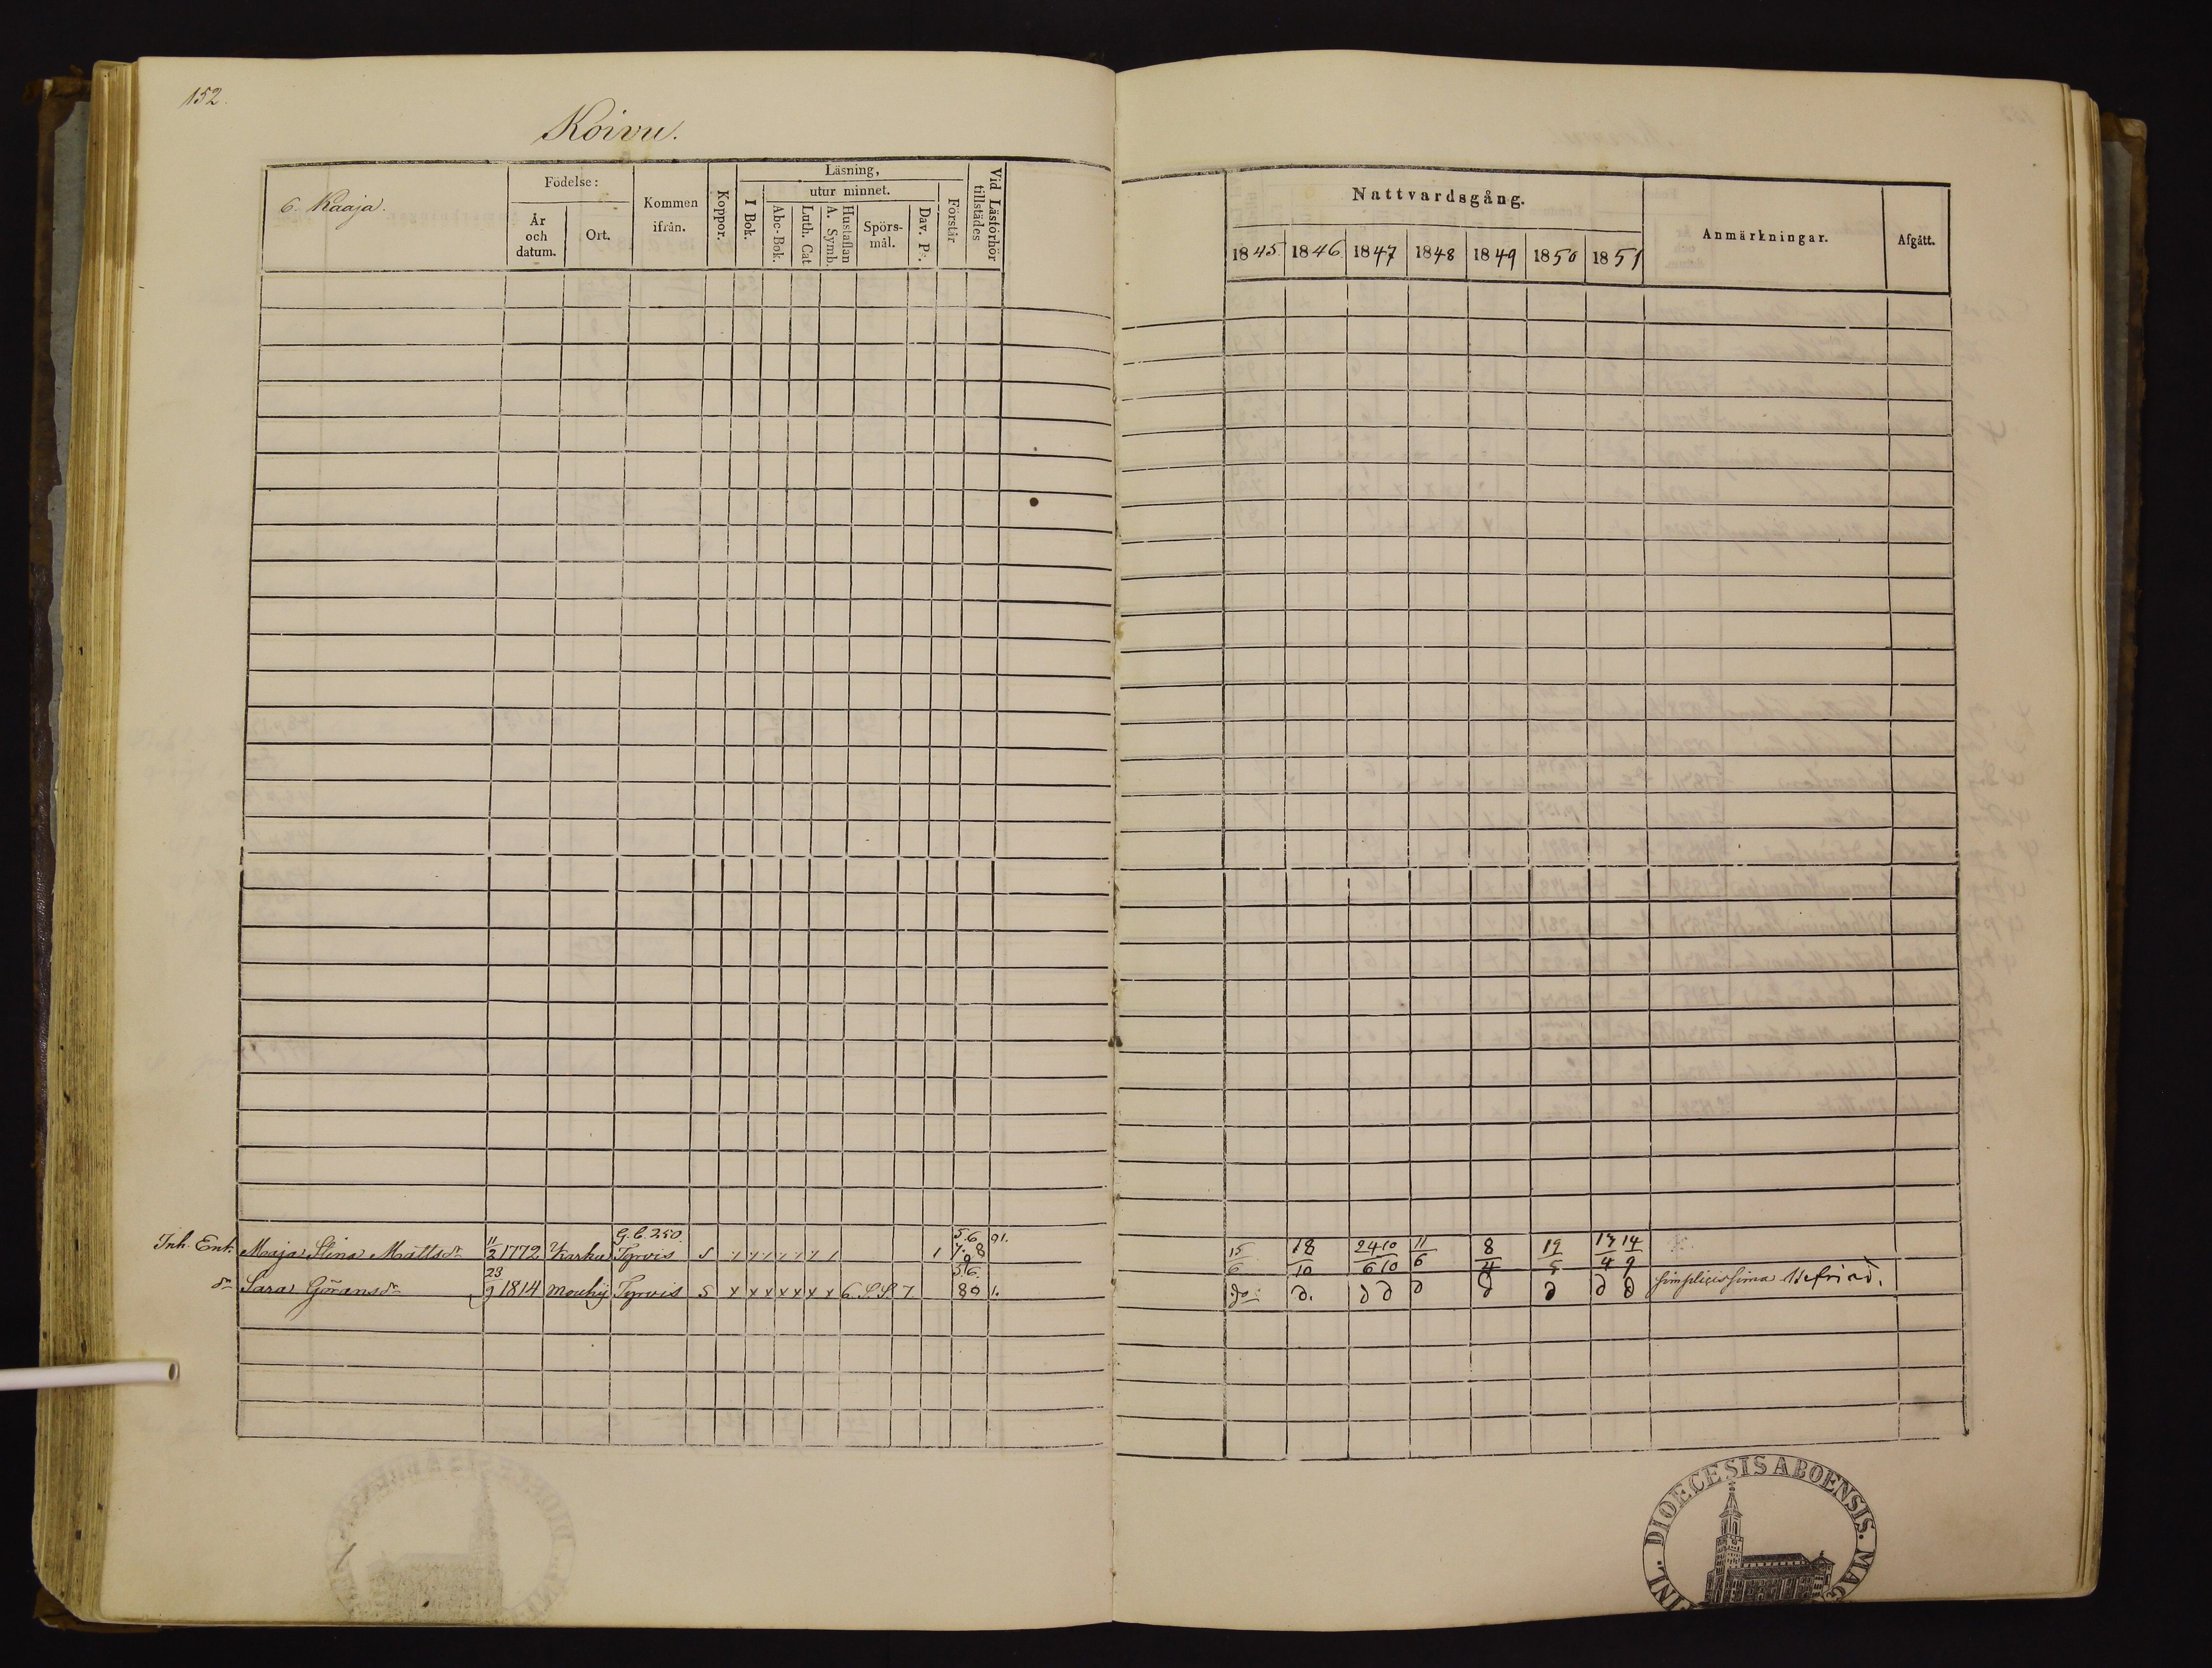 152.
Koivu.
6. Kaaja.
Födelse:
År och datum.
Ort.
Kommen ifrån.
Koppor.
Läsning,
I Bok.
utur minnet.
Abc-Bok.
Luth. Cat
Hustaflan A. Symb.
Spörs-mål.
Dav. Ps.
Förstår.
Vid Läsförhör tillstädes
Nattvardsgång.
1845. 1846. 1847 1848 1849 1850 1851
Anmärkningar.
Afgått.
Inh. Enk. Maja Stina Mattsdr 11/2 1772 Karku G. b. 250. Tyrvis S 5.6 7.8 91. 15/6 18/10 24/6 10/10 11/6 8/4 19/5 13/4 14/9
dr Sara Göransdr 23/9 1814 Mouhij Tyrvis S x x x x x x x 6 S. S. 7 5.6. 80 1. do d. d d d d d d d simplicissima befriad.
FINL. DIOECESIS ABOENSIS. MAG